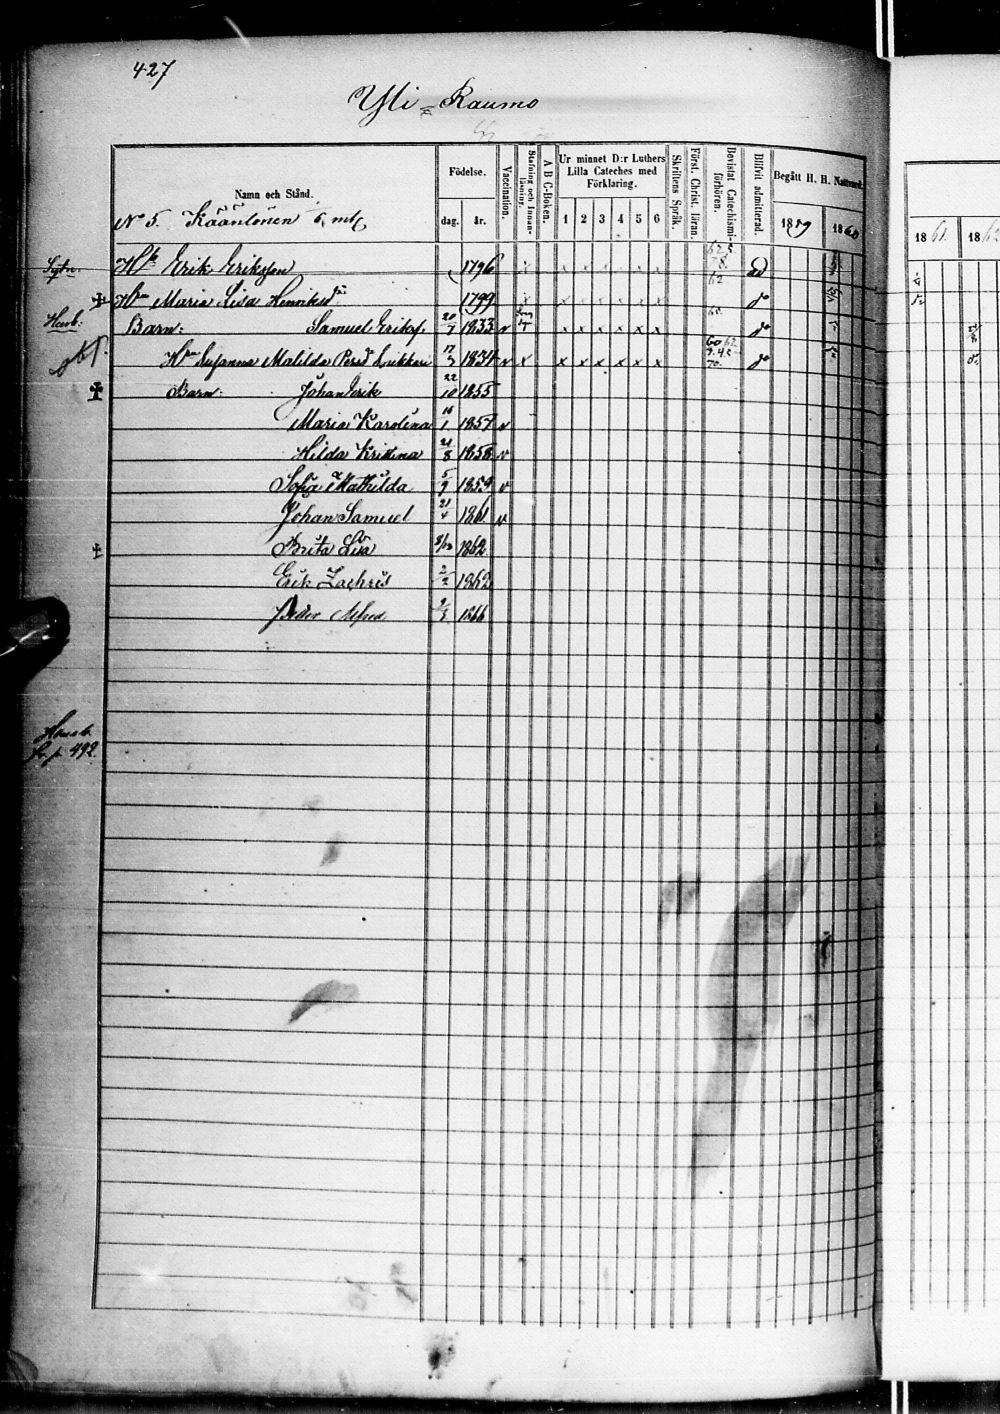 427
Yli-Raumo
Namn och Stånd.
Födelse.
dag. år.
Vaccination.
Stafning och Innanläsning.
A B C-Boken.
Ur minnet D:r Luthers Lilla Cateches med Förklaring.
1 2 3 4 5 6
Skriftens Språk.
Först. Christ. läran.
Bevistat Catechismiförhören.
Blifvit admitterad.
Begått H. H. Nattvard.
1859 1860
1861 1862
No 5. Kääntönen
Erik Eriksson 1796
Maria Lisa Henriksd:r 1799 do
Barn: Samuel Erikss. 20/7 1833 v x x x x x x do
Susanna Matilda Persd 17/3 1834 v x x x x x x x do
Barn: Johan Erik 22/10 1855
Maria Karolina 16/1 1857 v
Hilda Kristina 21/8 1858 v
Sofia Mathilda 5/9 1859 v
Johan Samuel 21/4 1861 v
Brita Lisa 1862
Erik Zachris 1862
Alfred 1866
p. 492.